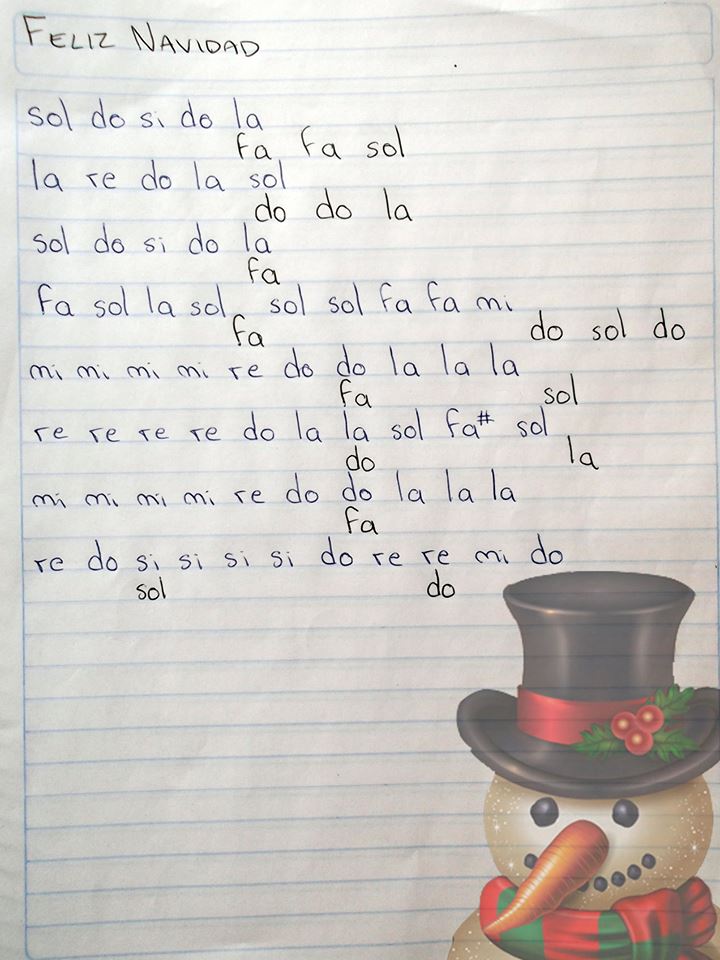 FELIZ NAVIDAD
sol do si do la
fa fa sol
la re do la sol
do do la
sol do si do la
fa
fa sol la sol sol sol fa fa mi
fa do sol do
mi mi mi mi re do do la la la
fa sol
re re re re do la la sol fa# sol
do la
mi mi mi mi re do do la la la
fa
re do si si si si do re re mi do
sol do